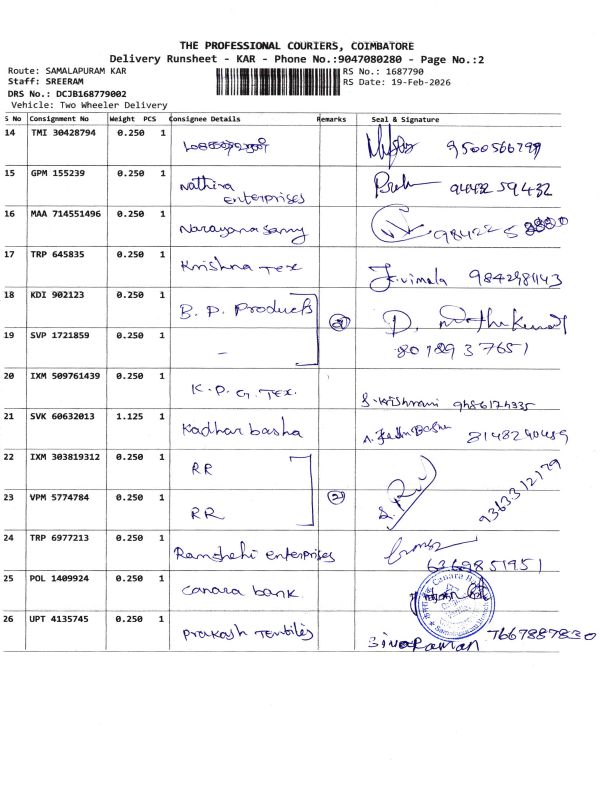 THE PROFESSIONAL COURIERS, COIMBATORE
Delivery Runsheet - KAR - Phone No.:9047080280 - Page No.:2
Route: SAMALAPURAM KAR
RS No.: 1687790
Staff: SREERAM
RS Date: 19-Feb-2026
DRS No.: DCJB168779002
Vehicle: Two Wheeler Delivery
S No Consignment No Weight PCS Consignee Details Remarks Seal & Signature
14 TMI 30428794 0.250 1
15 GPM 155239 0.250 1 Nathira enterprises 94432 59432
16 MAA 714551496 0.250 1 Narayana Samy 98422
17 TRP 645835 0.250 1 Krishna Tex J.vimala
18 KDI 902123 0.250 1 B. P. Products 2 D.
19 SVP 1721859 0.250 1 - 80189 37651
20 IXM 509761439 0.250 1 K. P. G. Tex. 9486174335
21 SVK 60632013 1.125 1 Kadhar basha 8148240489
22 IXM 303819312 0.250 1 RR
23 VPM 5774784 0.250 1 RR 2 9363312179
24 TRP 6977213 0.250 1 enterprises 6369851951
25 POL 1409924 0.250 1 Canara bank
26 UPT 4135745 0.250 1 Prakash Textiles Sivaraman 7667887830